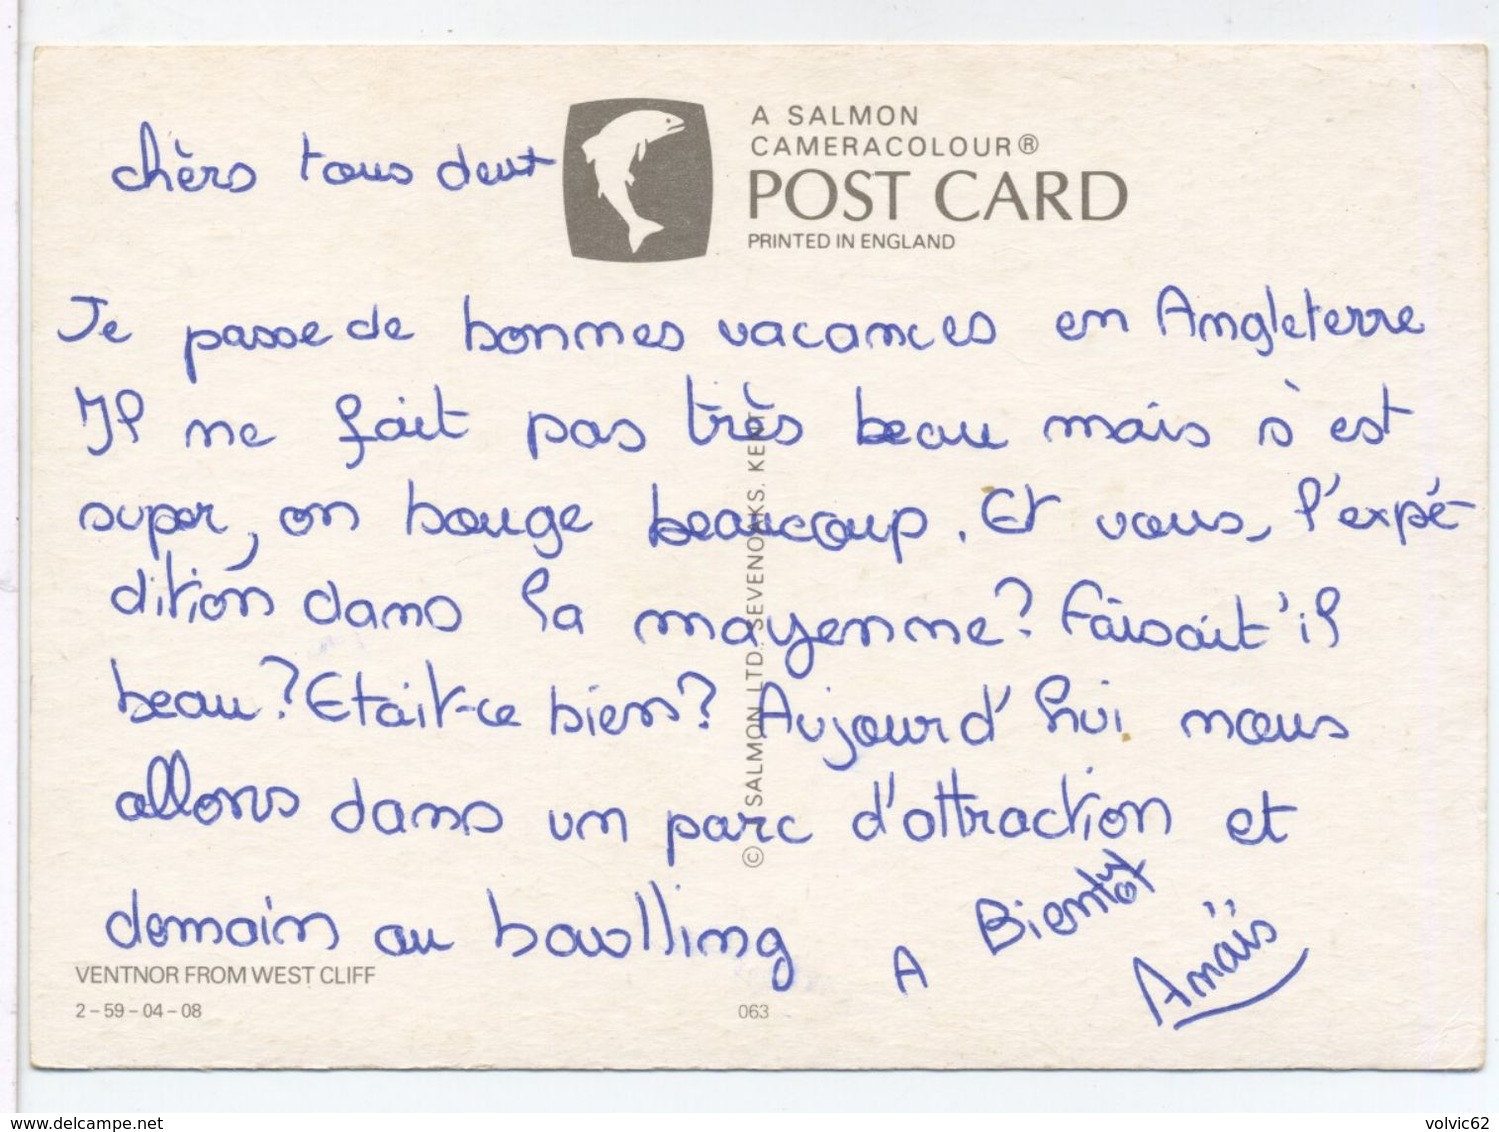 A SALMON
CAMERACOLOUR®
POST CARD
PRINTED IN ENGLAND
chèrs tous deux
Je passe de bonnes vacances en Angleterre
Il ne fait pas très beau mais s'est
super, on bouge beaucoup. Et vous, l'expé-
dition dans la mayenne? Faisait'il
beau? Etait-ce bien? Aujourd'hui nous
allons dans un parc d'attraction et
demain au bowlling
A Bientôt
Anaïs
© SALMON LTD. SEVENOAKS. KENT
VENTNOR FROM WEST CLIFF
2-59-04-08
063
delcampe.net
volvic62